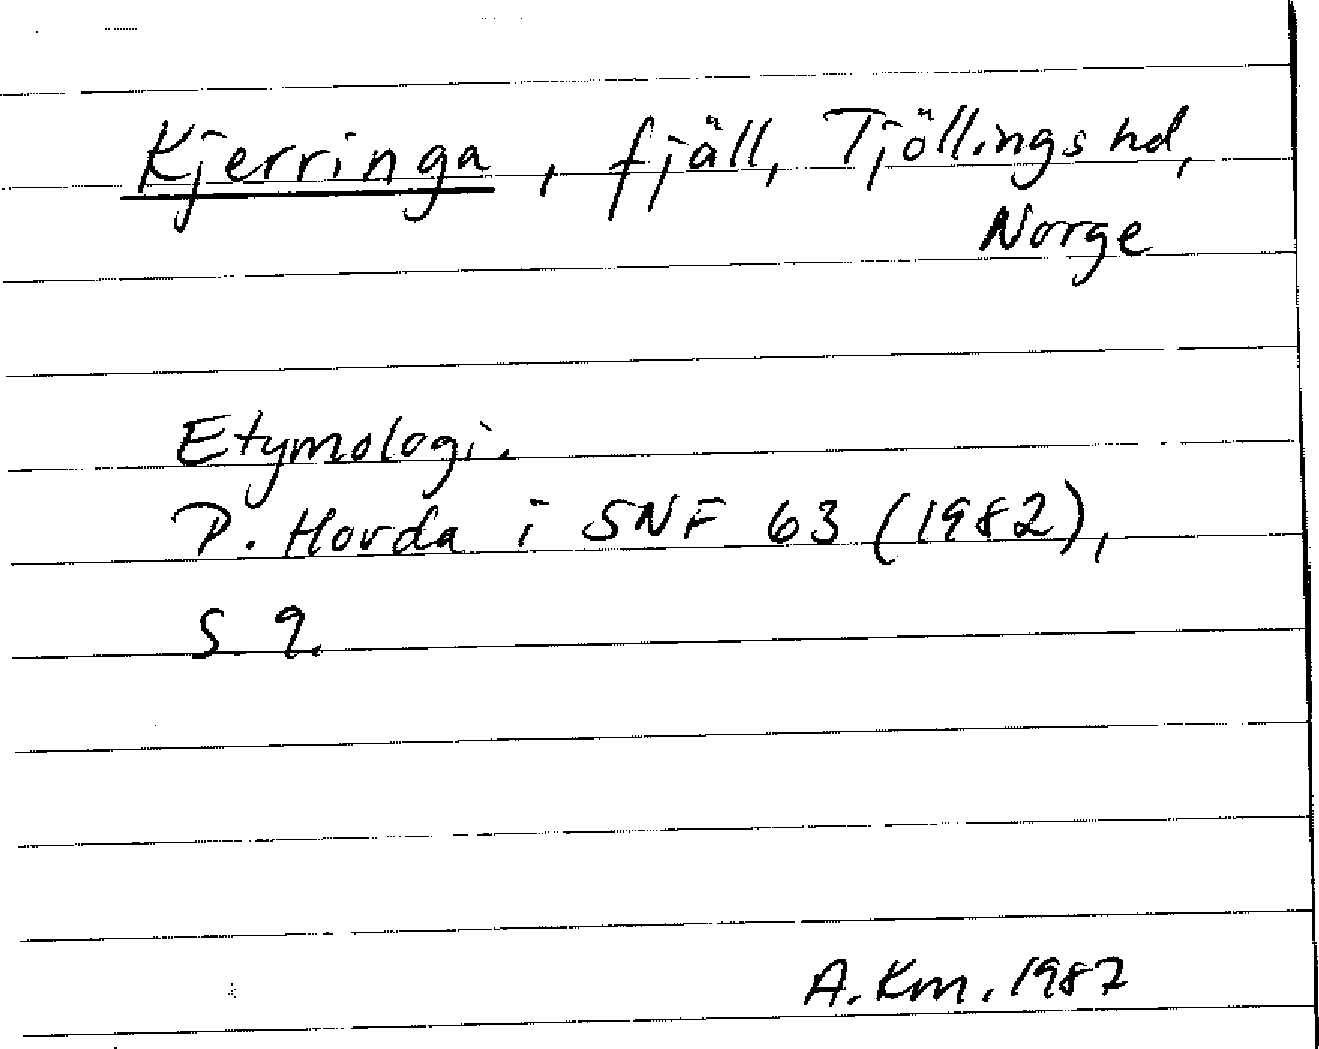 Kjerringa, fjäll, Tjöllings hd,
Norge
Etymologi.
P. Hovda i SNF 63 (1982),
S. 9.
A. Km. 1987